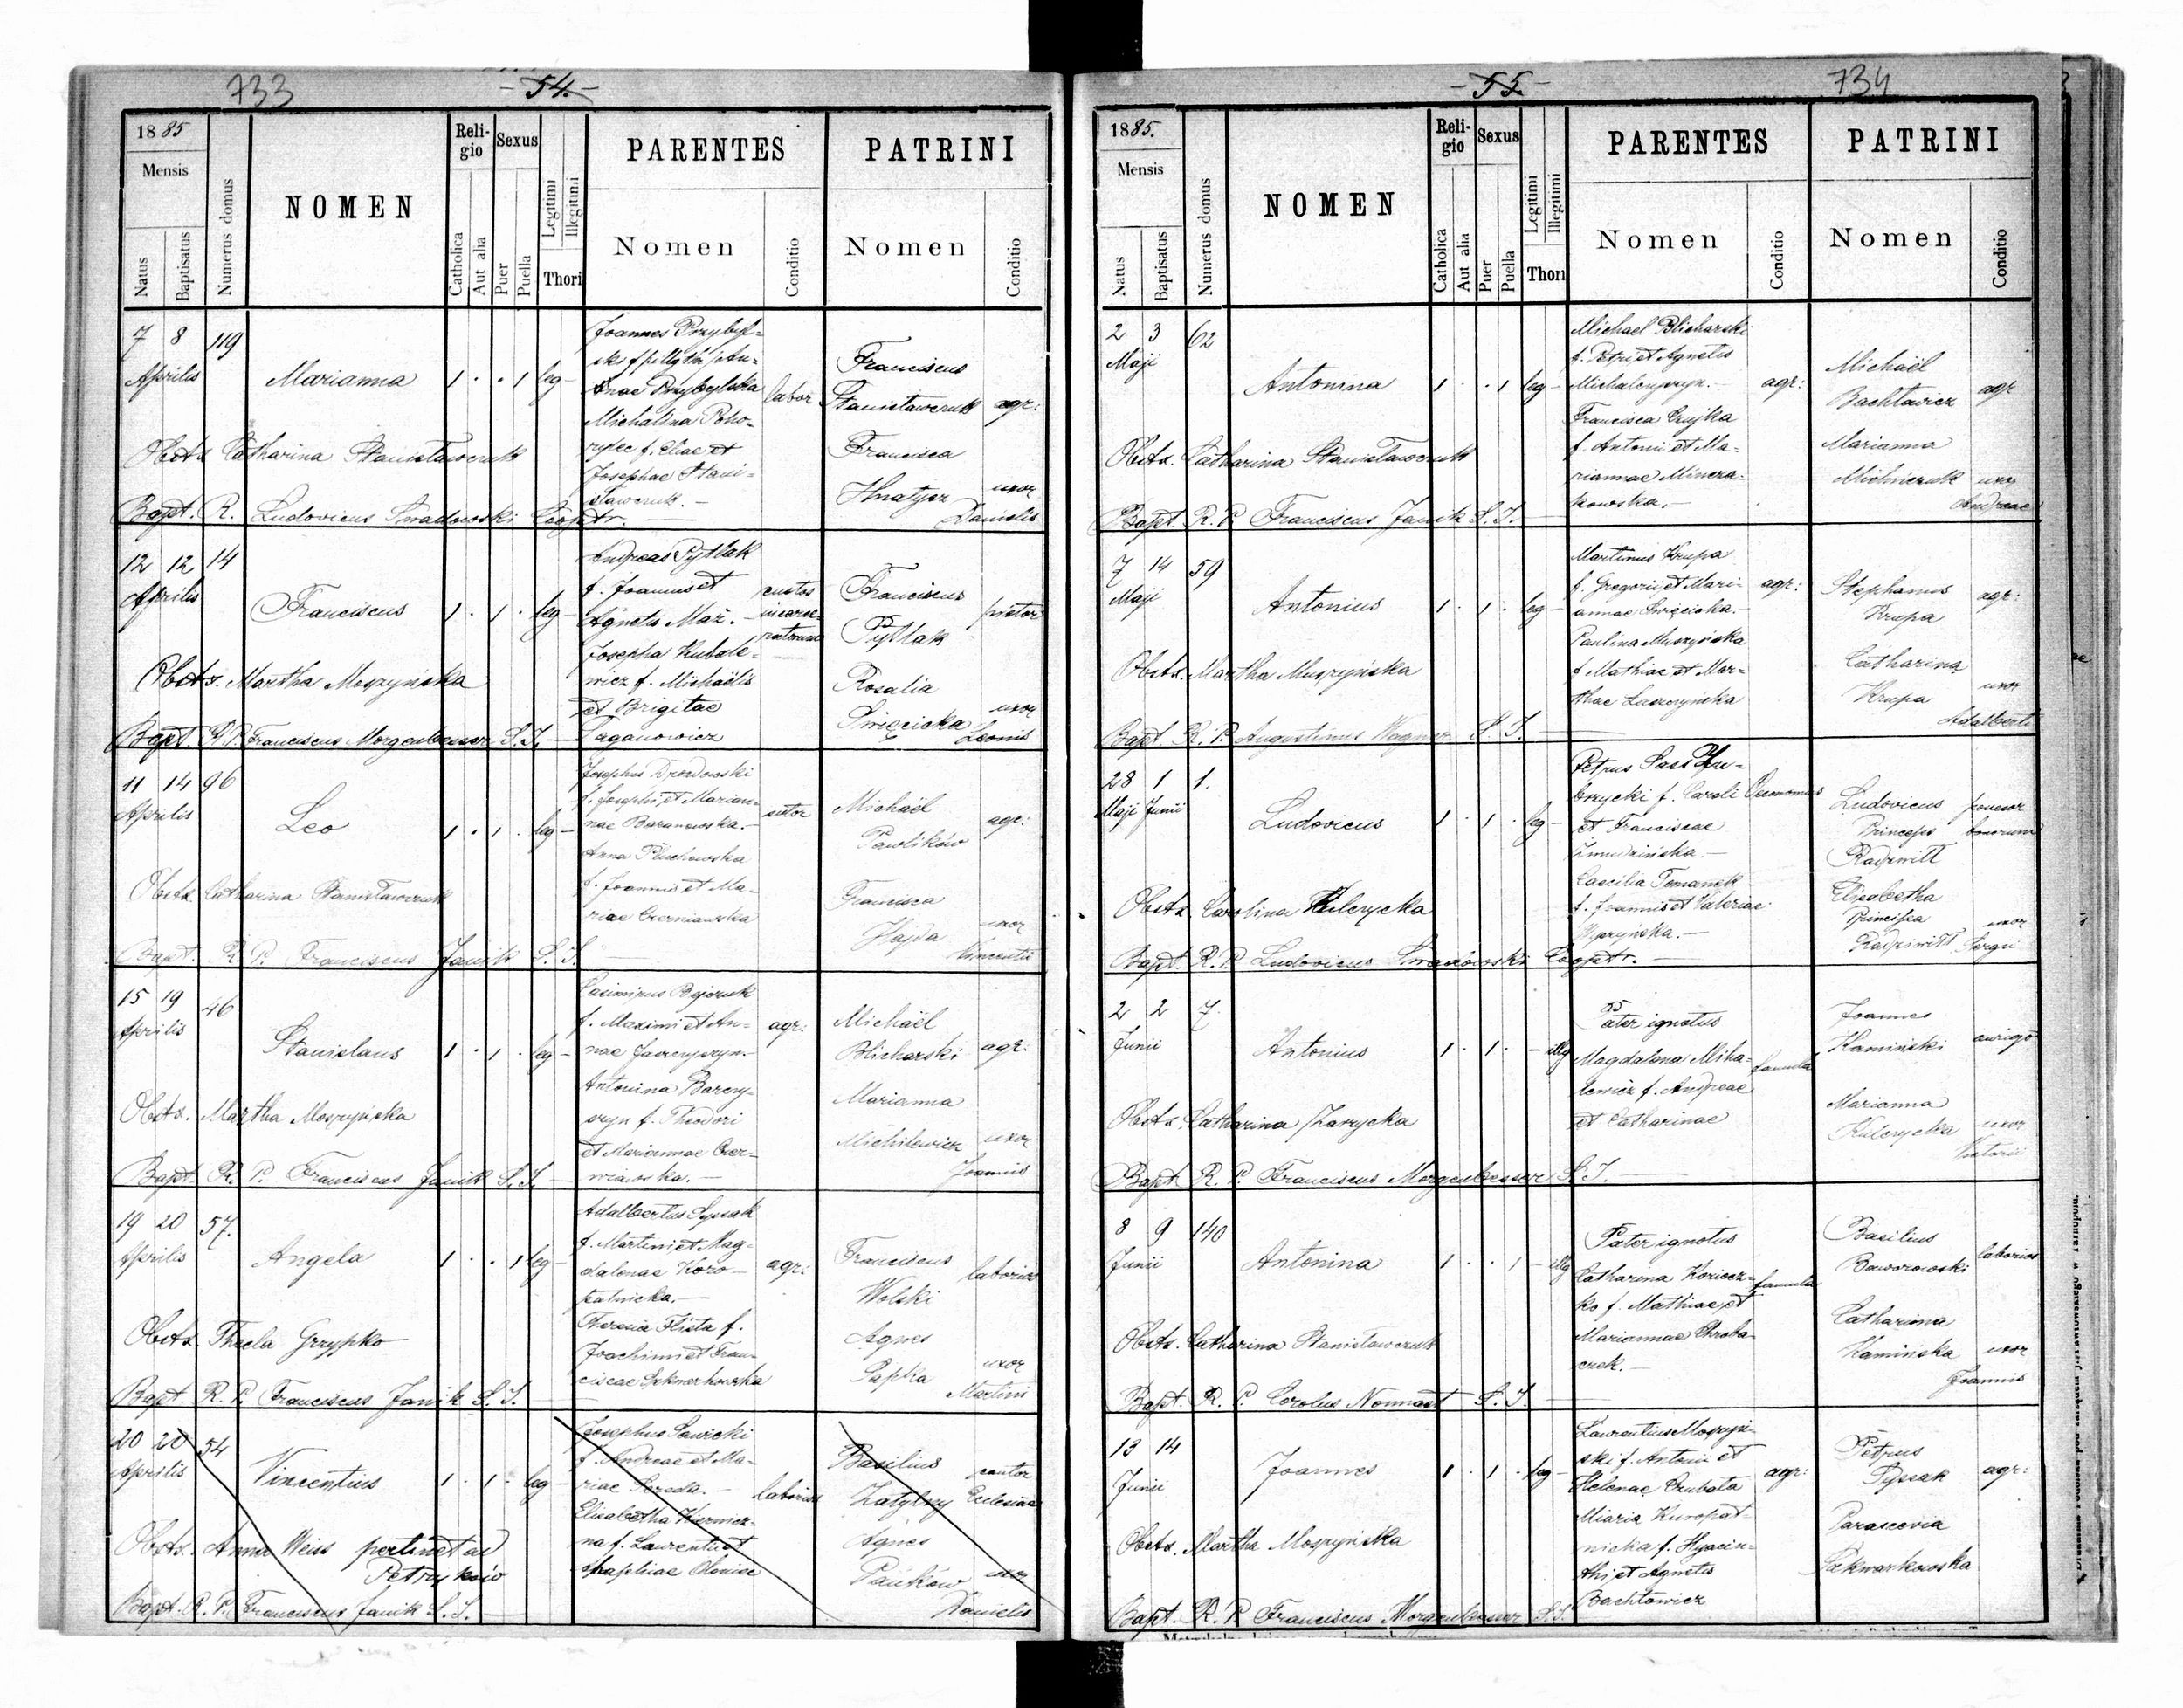 733
- 54. -
1885
Mensis
Natus
Baptisatus
Numerus domus
NOMEN
Religio
Catholica
Aut alia
Sexus
Puer
Puella
Legitimi
Illegitimi
Thori
PARENTES
Nomen
Conditio
PATRINI
Nomen
Conditio
7 8 119
Aprilis
Marianna
1 . . 1 leg -
Joannes Przybyl-
ski
nae Przybylska
Michalina Poho-
rylec f. Eliae et
Josephae Stani-
sławczuk. -
labor
Franciscus
Stanisławczuk agr:
Francisca
Hnatysz uxor
Danielis
Obstx Catharina Stanisławczuk
Bapt. R. Ludovicus Cooptr.
12 12 14
Aprilis
Franciscus
1 . 1 . leg -
Andreas Pytlak
f. Joannis et
Agnetis Maz. -
Josepha Kubale-
wicz f. Michaëlis
et Brigitae
Łaganowicz
custos
incarce-
ratorum
Franciscus
Pytlak
Rosalia
Święcicka uxor
Leonis
Obstx. Martha Moszyńska
Bapt. R. P. Franciscus Morgenbesser S. J. -
11 14 96
Aprilis
Leo
1 . 1 . leg -
Josephus Drozdowski
f. Josephi et Marian-
nae Baranowska. -
Anna
f. Joannis et Ma-
riae Czerniawska
sutor
Michaël
Pawlików
agr:
Francisca
Hajda uxor
Vincentii
Obstx. Catharina Stanisławczuk
Bapt. R. P. Franciscus Janik S. J.
15 19 46
Aprilis
Stanislaus
1 . 1 . leg -
Casimirus Bejczuk
f. Maximi et An-
nae
Antonina Barczy-
szyn f. Theodori
et Mariannae Czer-
niawska. -
agr:
Michaël
Blicharski agr:
Marianna
Michilewicz uxor
Joannis
Obstx. Martha Moszyńska
Bapt. R. P. Franciscus Janik S. J. -
19 20 57.
Aprilis
Angela
1 . . 1 leg -
Adalbertus Pyssak
f. Martini et Mag-
dalenae Koro-
patnicka. -
Theresia Flista f.
Joachimi et Fran-
ciscae Szkwarkowska
agr:
Franciscus
Wolski
laborios
Agnes
Sapka uxor
Martini
Obstx. Thecla Grzypko
Bapt. R. P. Franciscus Janik S. J.
20 20 54
Aprilis
Vincentius
1 . 1 . leg -
Josephus Sawicki
f. Andreae et Ma-
riae Sereda. -
Elisabetha
na f. Laurentii et
Agaphiae
laborios
Basilius cantor
Zatylny Ecclesiae
Agnes
Pańków uxor
Danielis
Obstx. Anna Weiss pertinet ad
Petryków
Bapt. R. P. Franciscus Janik S. J.
- 55. -
734
1885.
Mensis
Natus
Baptisatus
Numerus domus
NOMEN
Religio
Catholica
Aut alia
Sexus
Puer
Puella
Legitimi
Illegitimi
Thori
PARENTES
Nomen
Conditio
PATRINI
Nomen
Conditio
2 3 62
Maji
Antonina
1 . . 1 leg -
Michael Blicharski
f. Petri et Agnetis
Michalczyszyn. -
Francisca Czujka
f. Antonii et Ma-
riannae Mincza-
kowska. -
agr:
Michaël
Bachtawicz agr
Marianna
Michniczuk uxor
Andreae
Obstx. Catharina Stanisławczuk
Bapt. R. P. Franciscus Janik S. J. -
7 14 59
Maji
Antonius
1 . 1 . leg -
Martinus Krupa
f. Gregorii et Mari-
annae Święcicka. -
Paulina Muszyńska
f. Mathiae et Mar-
thae Łaszczyńska
agr:
Stephanus
Krupa
agr:
Catharina
Krupa uxor
Adalberti
Obstx. Martha Muszyńska
Bapt. R. P. Augustinus Wagner S. J. -
28 1 1.
Maji Junii
Ludovicus
1 . 1 . leg -
Petrus Sas
brzycki f. Caroli
et Franciscae
Żmudzińska. -
Caecilia Tomanek
f. Joannis et Valeriae
Oeconomus
Ludovicus possesor
Princeps bonorum
Radziwiłł
Elisabetha
Principsa
Radziwiłł uxor
Obstx. Carolina Kulczycka
Bapt. R. P. Ludovicus Cooptr. -
2 2 7.
Junii
Antonius
1 . 1 . - illg
Pater ignotus
Magdalena Miha-
lewicz f. Andreae
et Catharinae
famula
Joannes
Kamiński auriga
Marianna
Kulczycka uxor
Obstx. Catharina Zarzycka
Bapt. R. P. Franciscus Morgenbesser S. J. -
8 9 140
Junii
Antonina
1 . . 1 - illg
Pater ignotus
Catharina Koziocz-
ko f. Mathiae et
Mariannae Chroba-
czek. -
famula
Basilius
Baworowski laborios
Catharina
Kamińska uxor
Joannis
Obstx. Catharina Stanisławczuk
Bapt. R. P. Carolus S. J. -
13 14
Junii
Joannes
1 . 1 . leg -
Laurentius Moszyń-
ski f. Antonii et
Helenae Czubata
Maria Kuropat-
nicka f. Hyacin-
thi et Agnetis
Bachtawicz
agr:
Petrus
Pyssak agr:
Parascevia
Szkwarkowska
Obstx. Martha Moszyńska
Bapt. R. P. Franciscus Morgenbesser S. J.